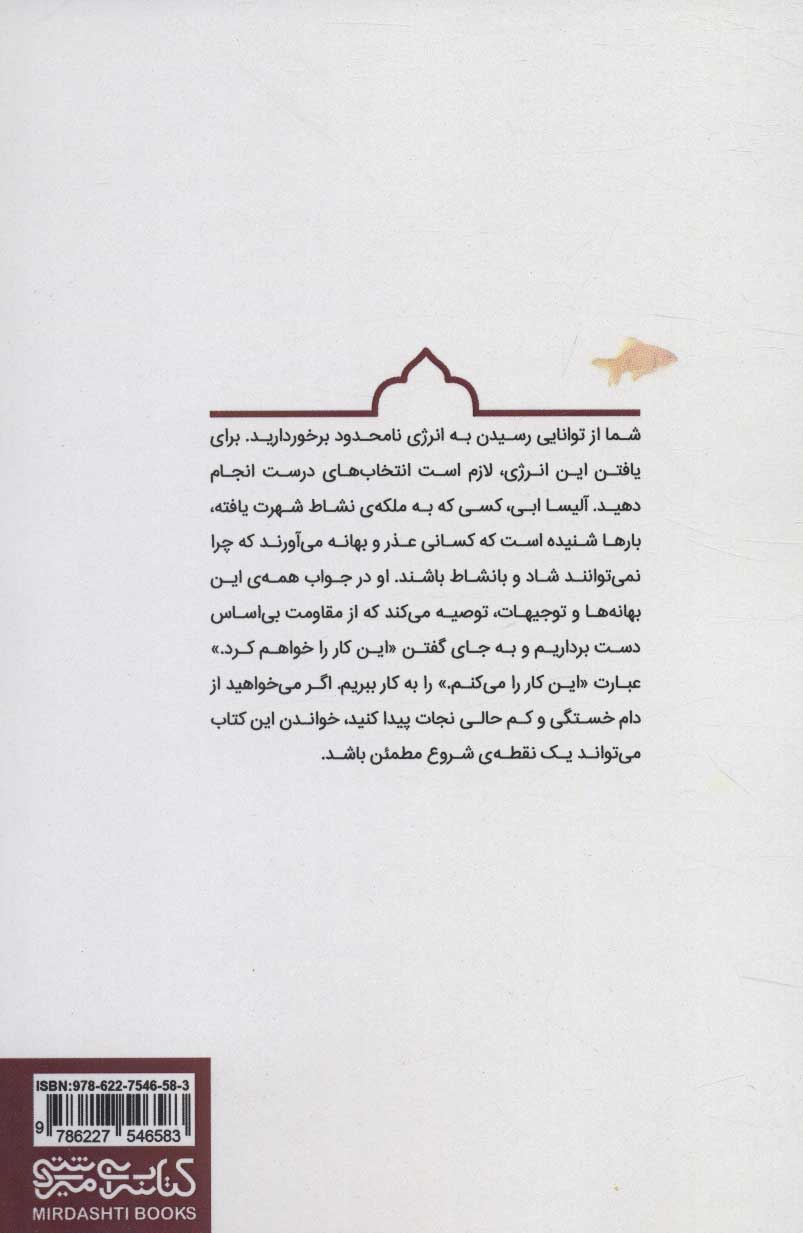 شما از توانایی رسیدن به انرژی نامحدود برخوردارید. برای
یافتن این انرژی، لازم است انتخاب‌های درست انجام
دهید. آلیسا ابی، کسی که به ملکه‌ی نشاط شهرت یافته،
بارها شنیده است که کسانی عذر و بهانه می‌آورند که چرا
نمی‌توانند شاد و بانشاط باشند. او در جواب همه‌ی این
بهانه‌ها و توجیهات، توصیه می‌کند که از مقاومت بی‌اساس
دست برداریم و به جای گفتن «این کار را خواهم کرد.»
عبارت «این کار را می‌کنم.» را به کار ببریم. اگر می‌خواهید از
دام خستگی و کم حالی نجات پیدا کنید، خواندن این کتاب
می‌تواند یک نقطه‌ی شروع مطمئن باشد.
ISBN:978-622-7546-58-3
9 786227 546583
کتابسرای میردشتی
MIRDASHTI BOOKS